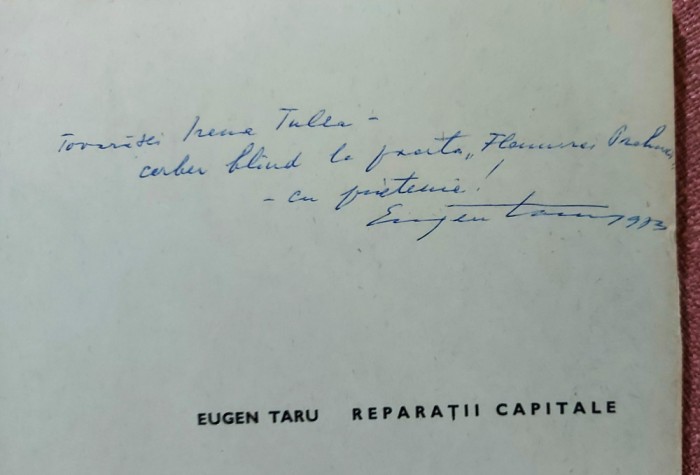 Tovarășei Irena Tulea -
cerber blînd la poarta „Flamurei Prahovei"
- cu prietenie!
Eugen Taru 1973
EUGEN TARU REPARAȚII CAPITALE